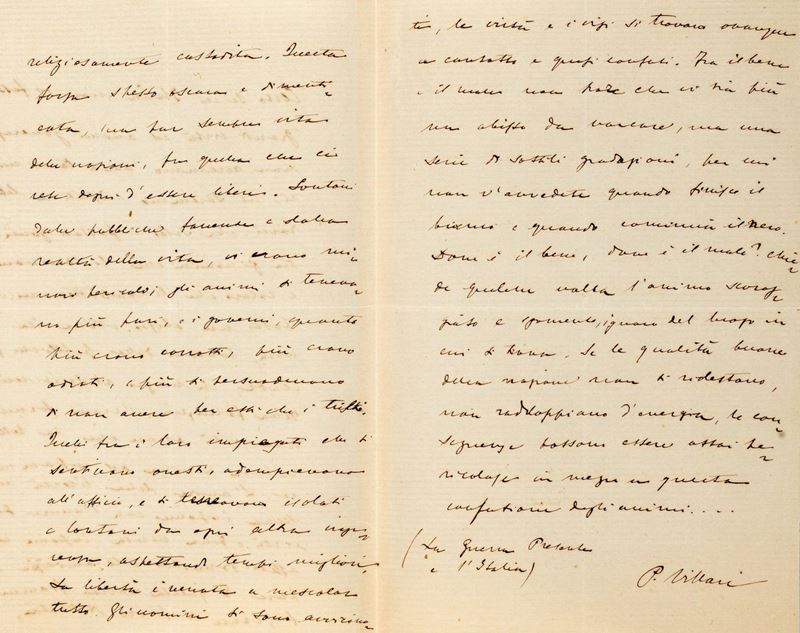 religiosamente custodita. Questa
forza spesso oscura e dimenti-
cata, ma pur sempre vita
delle nazioni, fu quella che ci
rese degni d'essere liberi. Lontani
dalle pubbliche faccende e dalla
realtà della vita, vi erano mi-
nori pericoli; gli animi si teneva-
no più puri, e i governi, quanto
più erano corrotti, più erano
odiati, e più si persuadevano
di non avere per essi che i tristi.
Quelli fra i loro impiegati che si
sentivano onesti, adempievano
all'officio, e si tenevano isolati
e lontani da ogni altra inge-
renza, aspettando tempi migliori.
La libertà è venuta a mescolar
tutto. Gli uomini si sono avvicina-
ti, le virtù e i vizi si trovano ovunque
a contatto e quasi confusi. Fra il bene
e il male non pare che vi sia più
un abisso da varcare, ma una
serie di sottili gradazioni, per cui
non v'avvedete quando finisce il
bianco e quando comincia il nero.
Dove è il bene, dove è il male? chie-
de qualche volta l'animo scorag-
giato e sgomento, ignaro del luogo in
cui si trova. Se le qualità buone
della nazione non si ridestano,
non raddoppiano d'energia, le con-
seguenze possono essere assai pe-
ricolose in mezzo a questa
confusione degli animi....
(La Guerra Presente
e l'Italia)
P. Villari